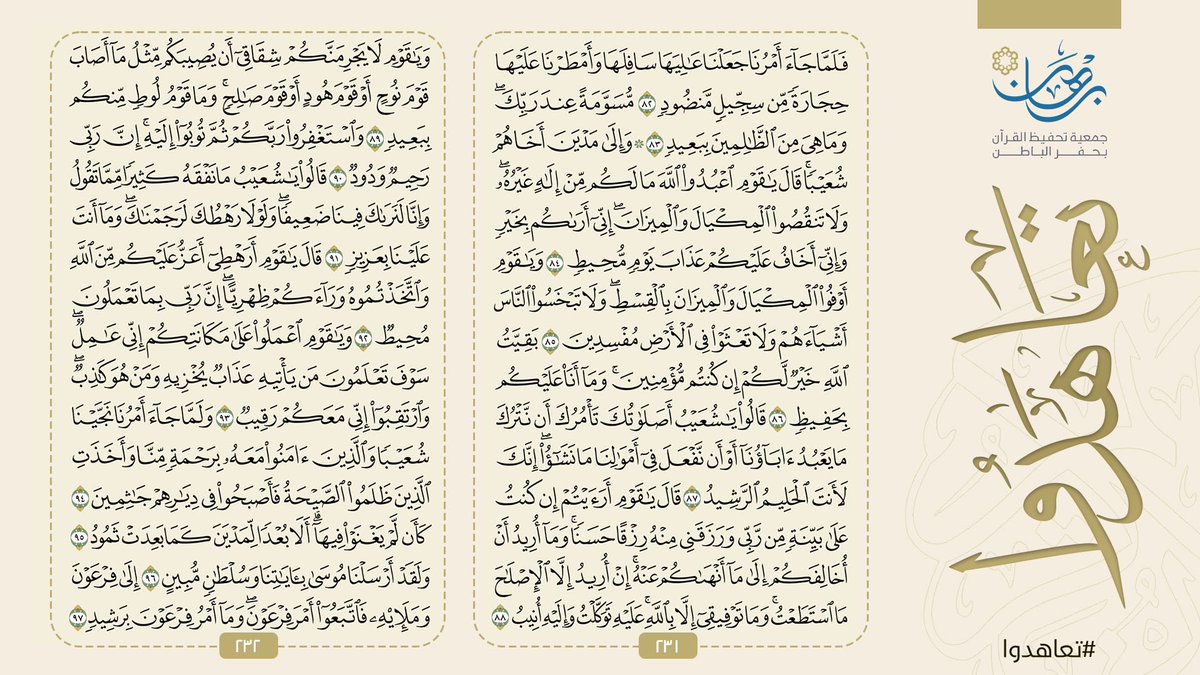 برهان
جمعية تحفيظ القرآن
بحفر الباطن
تعاهدوا
#تعاهدوا
فَلَمَّا جَآءَ أَمْرُنَا جَعَلْنَا عَٰلِيَهَا سَافِلَهَا وَأَمْطَرْنَا عَلَيْهَا
حِجَارَةً مِّن سِجِّيلٍ مَّنضُودٍ ٨٢ مُّسَوَّمَةً عِندَ رَبِّكَۖ
وَمَا هِيَ مِنَ ٱلظَّٰلِمِينَ بِبَعِيدٍ ٨٣ ۞ وَإِلَىٰ مَدْيَنَ أَخَاهُمْ
شُعَيْبًاۚ قَالَ يَٰقَوْمِ ٱعْبُدُوا۟ ٱللَّهَ مَا لَكُم مِّنْ إِلَٰهٍ غَيْرُهُۥۖ
وَلَا تَنقُصُوا۟ ٱلْمِكْيَالَ وَٱلْمِيزَانَۖ إِنِّىٓ أَرَىٰكُم بِخَيْرٍ
وَإِنِّىٓ أَخَافُ عَلَيْكُمْ عَذَابَ يَوْمٍ مُّحِيطٍ ٨٤ وَيَٰقَوْمِ
أَوْفُوا۟ ٱلْمِكْيَالَ وَٱلْمِيزَانَ بِٱلْقِسْطِۖ وَلَا تَبْخَسُوا۟ ٱلنَّاسَ
أَشْيَآءَهُمْ وَلَا تَعْثَوْا۟ فِى ٱلْأَرْضِ مُفْسِدِينَ ٨٥ بَقِيَّتُ
ٱللَّهِ خَيْرٌ لَّكُمْ إِن كُنتُم مُّؤْمِنِينَۚ وَمَآ أَنَا۠ عَلَيْكُم
بِحَفِيظٍ ٨٦ قَالُوا۟ يَٰشُعَيْبُ أَصَلَوٰتُكَ تَأْمُرُكَ أَن نَّتْرُكَ
مَا يَعْبُدُ ءَابَآؤُنَآ أَوْ أَن نَّفْعَلَ فِىٓ أَمْوَٰلِنَا مَا نَشَٰٓؤُا۟ۖ إِنَّكَ
لَأَنتَ ٱلْحَلِيمُ ٱلرَّشِيدُ ٨٧ قَالَ يَٰقَوْمِ أَرَءَيْتُمْ إِن كُنتُ
عَلَىٰ بَيِّنَةٍ مِّن رَّبِّى وَرَزَقَنِى مِنْهُ رِزْقًا حَسَنًاۚ وَمَآ أُرِيدُ أَنْ
أُخَالِفَكُمْ إِلَىٰ مَآ أَنْهَىٰكُمْ عَنْهُۚ إِنْ أُرِيدُ إِلَّا ٱلْإِصْلَٰحَ
مَا ٱسْتَطَعْتُۚ وَمَا تَوْفِيقِىٓ إِلَّا بِٱللَّهِۚ عَلَيْهِ تَوَكَّلْتُ وَإِلَيْهِ أُنِيبُ ٨٨
٢٣١
وَيَٰقَوْمِ لَا يَجْرِمَنَّكُمْ شِقَاقِىٓ أَن يُصِيبَكُم مِّثْلُ مَآ أَصَابَ
قَوْمَ نُوحٍ أَوْ قَوْمَ هُودٍ أَوْ قَوْمَ صَٰلِحٍۚ وَمَا قَوْمُ لُوطٍ مِّنكُم
بِبَعِيدٍ ٨٩ وَٱسْتَغْفِرُوا۟ رَبَّكُمْ ثُمَّ تُوبُوٓا۟ إِلَيْهِۚ إِنَّ رَبِّى
رَحِيمٌ وَدُودٌ ٩٠ قَالُوا۟ يَٰشُعَيْبُ مَا نَفْقَهُ كَثِيرًا مِّمَّا تَقُولُ
وَإِنَّا لَنَرَىٰكَ فِينَا ضَعِيفًاۖ وَلَوْلَا رَهْطُكَ لَرَجَمْنَٰكَۖ وَمَآ أَنتَ
عَلَيْنَا بِعَزِيزٍ ٩١ قَالَ يَٰقَوْمِ أَرَهْطِىٓ أَعَزُّ عَلَيْكُم مِّنَ ٱللَّهِ
وَٱتَّخَذْتُمُوهُ وَرَآءَكُمْ ظِهْرِيًّاۖ إِنَّ رَبِّى بِمَا تَعْمَلُونَ
مُحِيطٌ ٩٢ وَيَٰقَوْمِ ٱعْمَلُوا۟ عَلَىٰ مَكَانَتِكُمْ إِنِّى عَٰمِلٌۖ
سَوْفَ تَعْلَمُونَ مَن يَأْتِيهِ عَذَابٌ يُخْزِيهِ وَمَنْ هُوَ كَٰذِبٌۖ
وَٱرْتَقِبُوٓا۟ إِنِّى مَعَكُمْ رَقِيبٌ ٩٣ وَلَمَّا جَآءَ أَمْرُنَا نَجَّيْنَا
شُعَيْبًا وَٱلَّذِينَ ءَامَنُوا۟ مَعَهُۥ بِرَحْمَةٍ مِّنَّا وَأَخَذَتِ
ٱلَّذِينَ ظَلَمُوا۟ ٱلصَّيْحَةُ فَأَصْبَحُوا۟ فِى دِيَٰرِهِمْ جَٰثِمِينَ ٩٤
كَأَن لَّمْ يَغْنَوْا۟ فِيهَآۗ أَلَا بُعْدًا لِّمَدْيَنَ كَمَا بَعِدَتْ ثَمُودُ ٩٥
وَلَقَدْ أَرْسَلْنَا مُوسَىٰ بِـَٔايَٰتِنَا وَسُلْطَٰنٍ مُّبِينٍ ٩٦ إِلَىٰ فِرْعَوْنَ
وَمَلَإِي۟هِۦ فَٱتَّبَعُوٓا۟ أَمْرَ فِرْعَوْنَۖ وَمَآ أَمْرُ فِرْعَوْنَ بِرَشِيدٍ ٩٧
٢٣٢